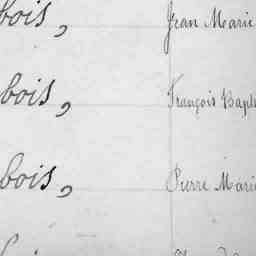 bois, Jean Marie
bois, François Bapt
bois, Pierre Marie